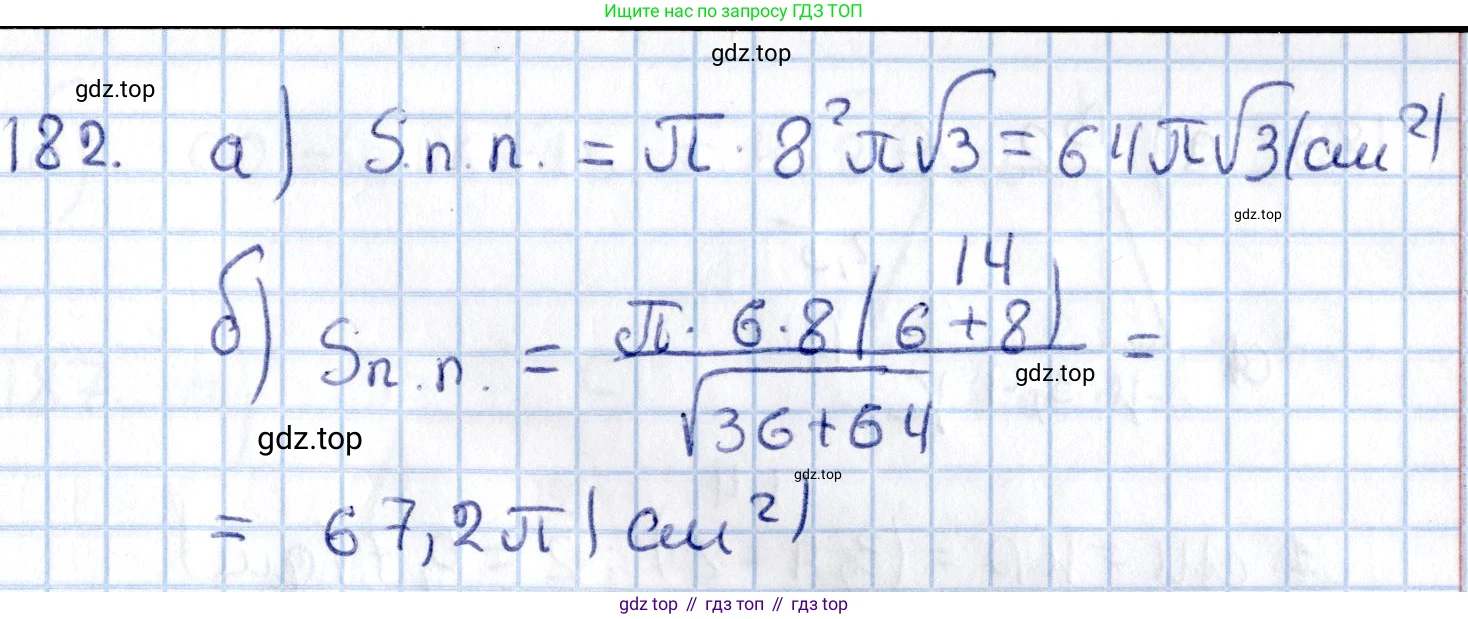 Ищите нас по запросу ГДЗ ТОП
gdz.top
gdz.top
182. а) Sп.п. = π · 8² π√3 = 64π√3 (см²)
gdz.top
14
б) Sп.п. = π · 6 · 8 (6 + 8) / √36 + 64 =
gdz.top
gdz.top
gdz.top
= 67,2π (см²)
gdz top // гдз топ // гдз top